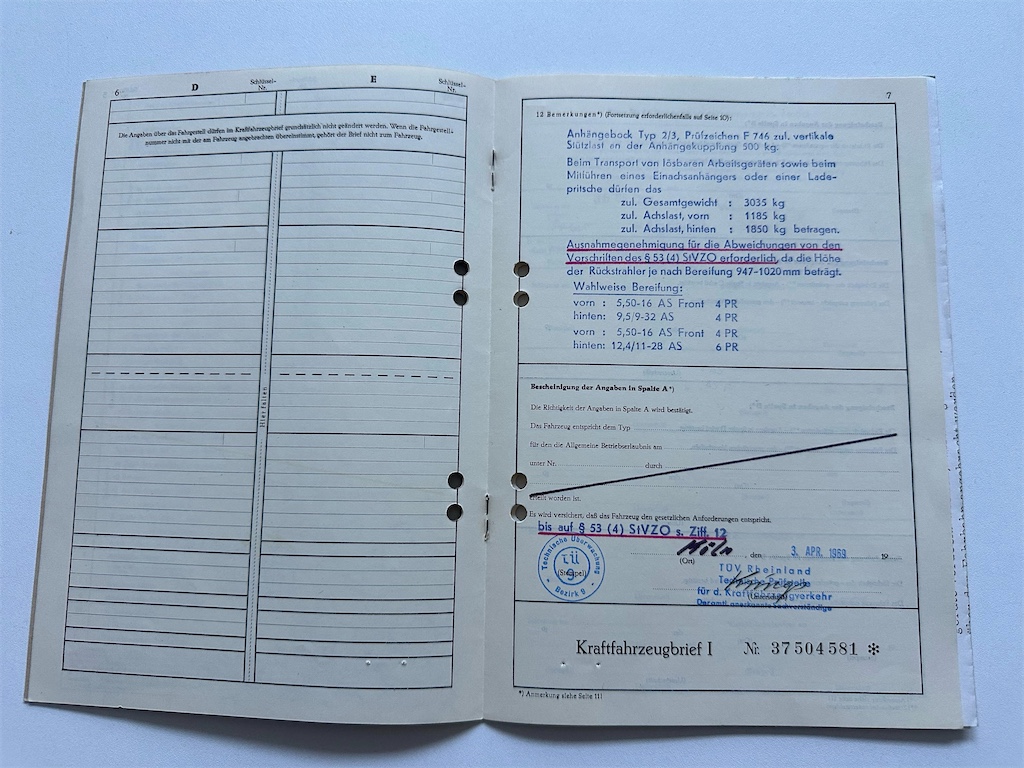 6
D
Schlüssel-
Nr.
E
Schlüssel-
Nr.
Die Angaben über das Fahrgestell dürfen im Kraftfahrzeugbrief grundsätzlich nicht geändert werden. Wenn die Fahrgestell-
nummer nicht mit der am Fahrzeug angebrachten übereinstimmt, gehört der Brief nicht zum Fahrzeug.
Hier falten
7
12 Bemerkungen*) (Fortsetzung erforderlichenfalls auf Seite 10):
Anhängebock Typ 2/3, Prüfzeichen F 746 zul. vertikale
Stützlast an der Anhängekupplung 500 kg.
Beim Transport von lösbaren Arbeitsgeräten sowie beim
Mitführen eines Einachsanhängers oder einer Lade-
pritsche dürfen das
zul. Gesamtgewicht : 3035 kg
zul. Achslast, vorn : 1185 kg
zul. Achslast, hinten : 1850 kg betragen.
Ausnahmegenehmigung für die Abweichungen von den
Vorschriften des § 53 (4) StVZO erforderlich, da die Höhe
der Rückstrahler je nach Bereifung 947-1020mm beträgt.
Wahlweise Bereifung:
vorn : 5,50-16 AS Front 4 PR
hinten: 9,5/9-32 AS 4 PR
vorn : 5,50-16 AS Front 4 PR
hinten: 12,4/11-28 AS 6 PR
Bescheinigung der Angaben in Spalte A*)
Die Richtigkeit der Angaben in Spalte A wird bestätigt.
Das Fahrzeug entspricht dem Typ
für den die Allgemeine Betriebserlaubnis am
unter Nr. durch
erteilt worden ist.
Es wird versichert, daß das Fahrzeug den gesetzlichen Anforderungen entspricht.
bis auf § 53 (4) StVZO s. Ziff. 12
Köln, den 3. APR. 1969 19
(Ort)
Technische Überwachung
tü
9
Bezirk 9
(Stempel)
TÜV Rheinland
Technische Prüfstelle
für d. Kraftfahrzeugverkehr
(Unterschrift)
Kraftfahrzeugbrief I Nr. 37504581 ✻
*) Anmerkung siehe Seite 11!